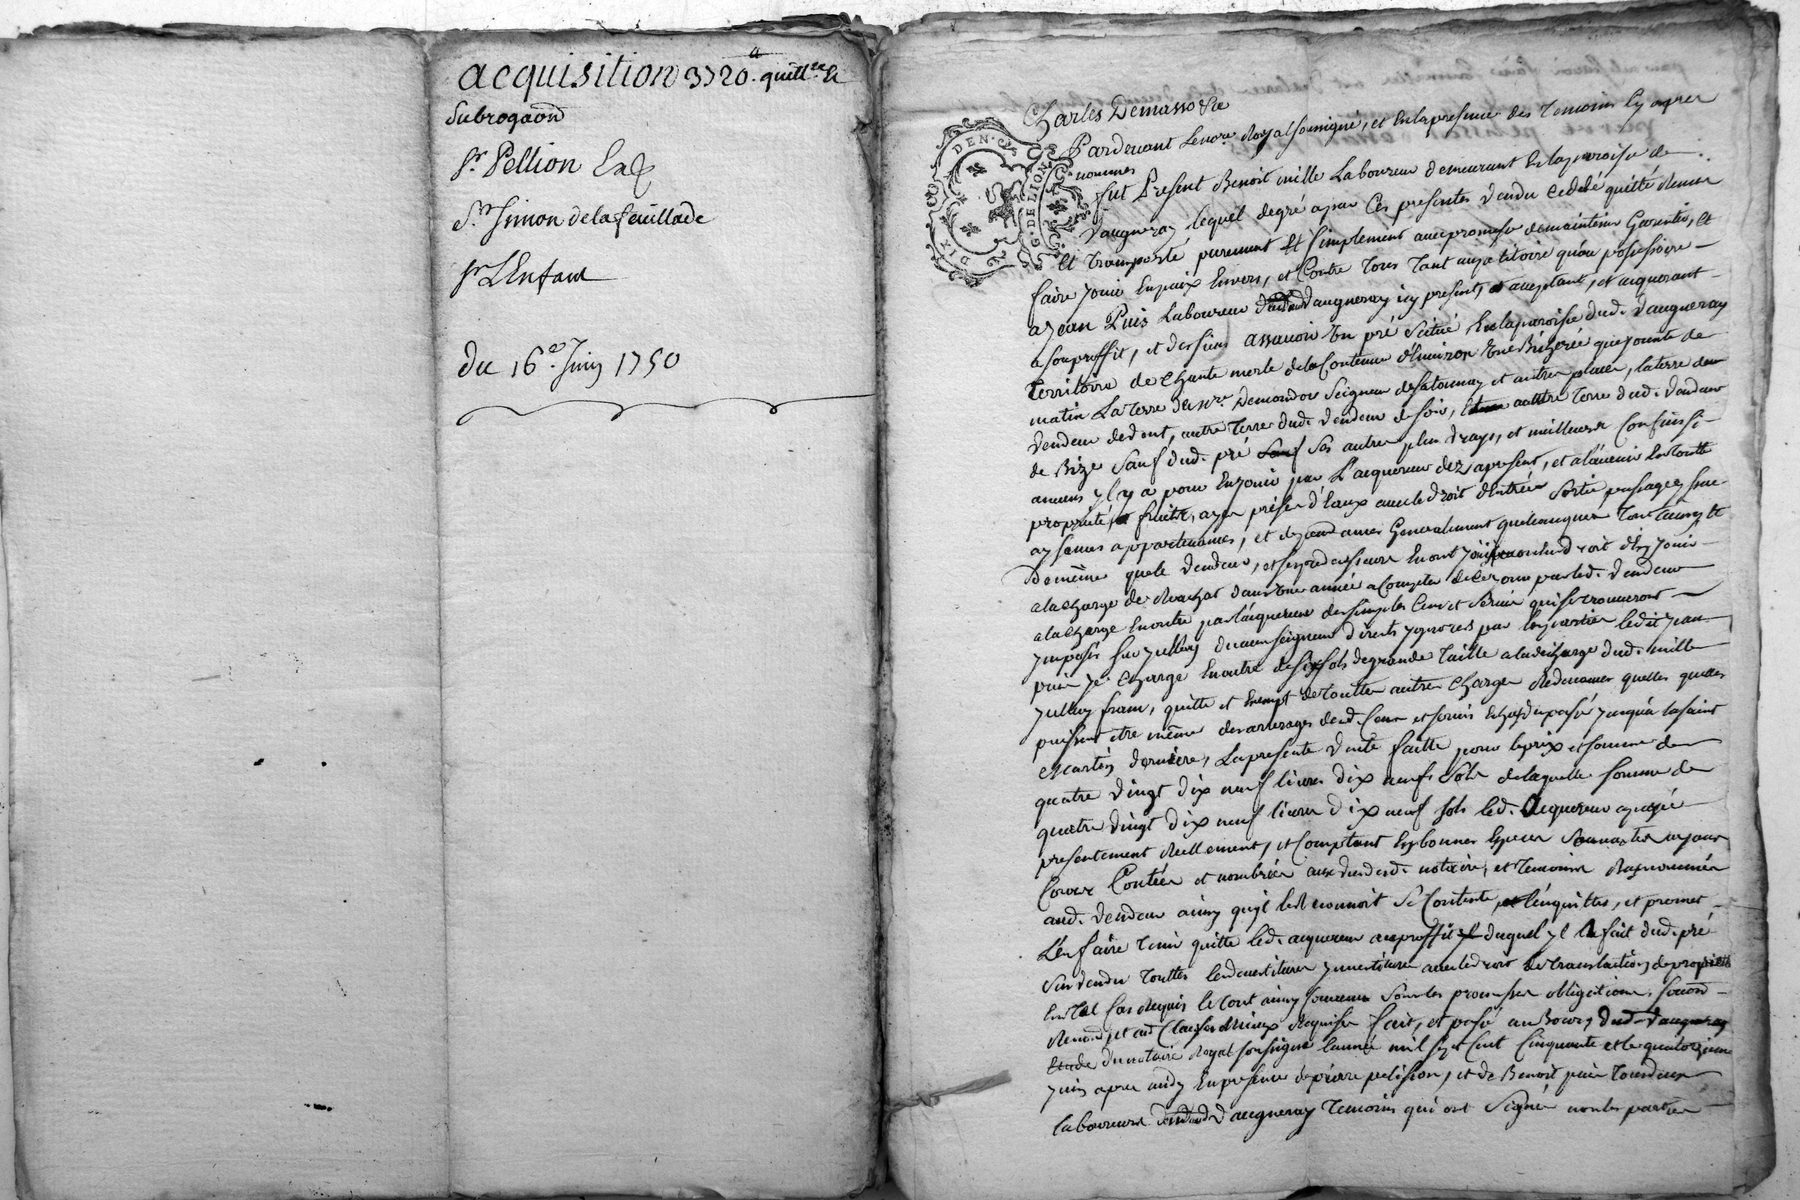 acquisition 3720. quitt.ce &
subrogaon
Sr. Pellion
Sr. Simon delafeuillade
Sr L'Enfant
Du 16e. Juin 1750
Charles Demasso &a
DEN. G. DE LION DIX
Pardevant Le nore. Royal soussigné, et en la presence des Temoins cy apres
nommés
fut Present Benoit mille Laboureur demeurant en la paroisse de
Vaugneray lequel degré a par Ces presentes Vendu Ceddé quitté Remis
Et Transporté purement Et simplement avec promesse de maintenir Garentir, Et
faire jouir En paix Envers, et Contre Tous Tant au petitoire qu'au possessoire
a jean Puis Laboureur dud Vaugneray icy present, et acceptant, et acquerant
a son proffit, et des siens assavoir Un pré Scitué En la paroisse dud. Vaugneray
Territoire de Chante merle de la Contenue d'Environ Une Bicherée qui jouxte de
matin La terre de Mre. Demondor Seigneur de et autres places, la terre dud
Vendeur de vent, autre Terre dud. Vendeur de soir, autre Terre dud. Vendeur
de Bize Sauf dud. pré Ses autres plus Vrays, et meilleurs Confins si
aucuns y l'y a pour En jouir par L'acquereur dez a present, et a l'avenir En toutte
propriété, et fruits, avec prises d'Eaux avec le droit d'Entrées Sortie passages
aysances appartenances, et dependances Generalement quelconques Tout ainsy Et
De même que le Vendeur, et ses predecesseurs En ont joüi droit d'En jouir
a la charge de Rachat dans Une année a Compter de ce jour par led. Vendeur
a la charge En outre par l'acquereur des simples Cens et Servis qui se trouveront
imposés sur jceluy Seigneurs directs ygnorés par les parties ledit jean
puis se charge En outre de six sols de grande Taille a la decharge dud. mille
jceluy franc, quitte et Exempt de Touttes autres charges Redevances quelles quelles
puissent etre même des arrerages desd. Cens et servis du passé jusqu'a la saint
Martin derniere, La presente Vente faitte pour le prix et somme de
quatre Vingt dix neuf livres dix neuf Sols de laquelle somme de
quatre Vingt dix neuf livres dix neuf sols led. Acquereur a payé
presentement Réellement, et Comptant En bonnes Especes Sonantes ayant
Cours Contées et nombrées aux vües dud. notaire, et Temoins
aud. Vendeur ainsy qu'il le Reconnoit se Contente, l'en quittes, et promet
L'en faire Tenir quitte led. acquereur au proffit duquel il fait dud. pré
Sus Vendu Touttes les devestitures jnvestitures avec de Translation de propriété
En Tel Cas Requis le Tout ainsy Sous les promesses obligations
Renonce, et aud Clauses Requises fait, et passé au Bourg dud. Vaugneray
Etude du notaire Royal soussigné l'année mil sept Cent Cinquante et le quatorzieme
juin apres midy En presence de pierre pelission, et de Benoit puis
laboureurs dud Vaugneray Temoins qui ont Signé non les parties